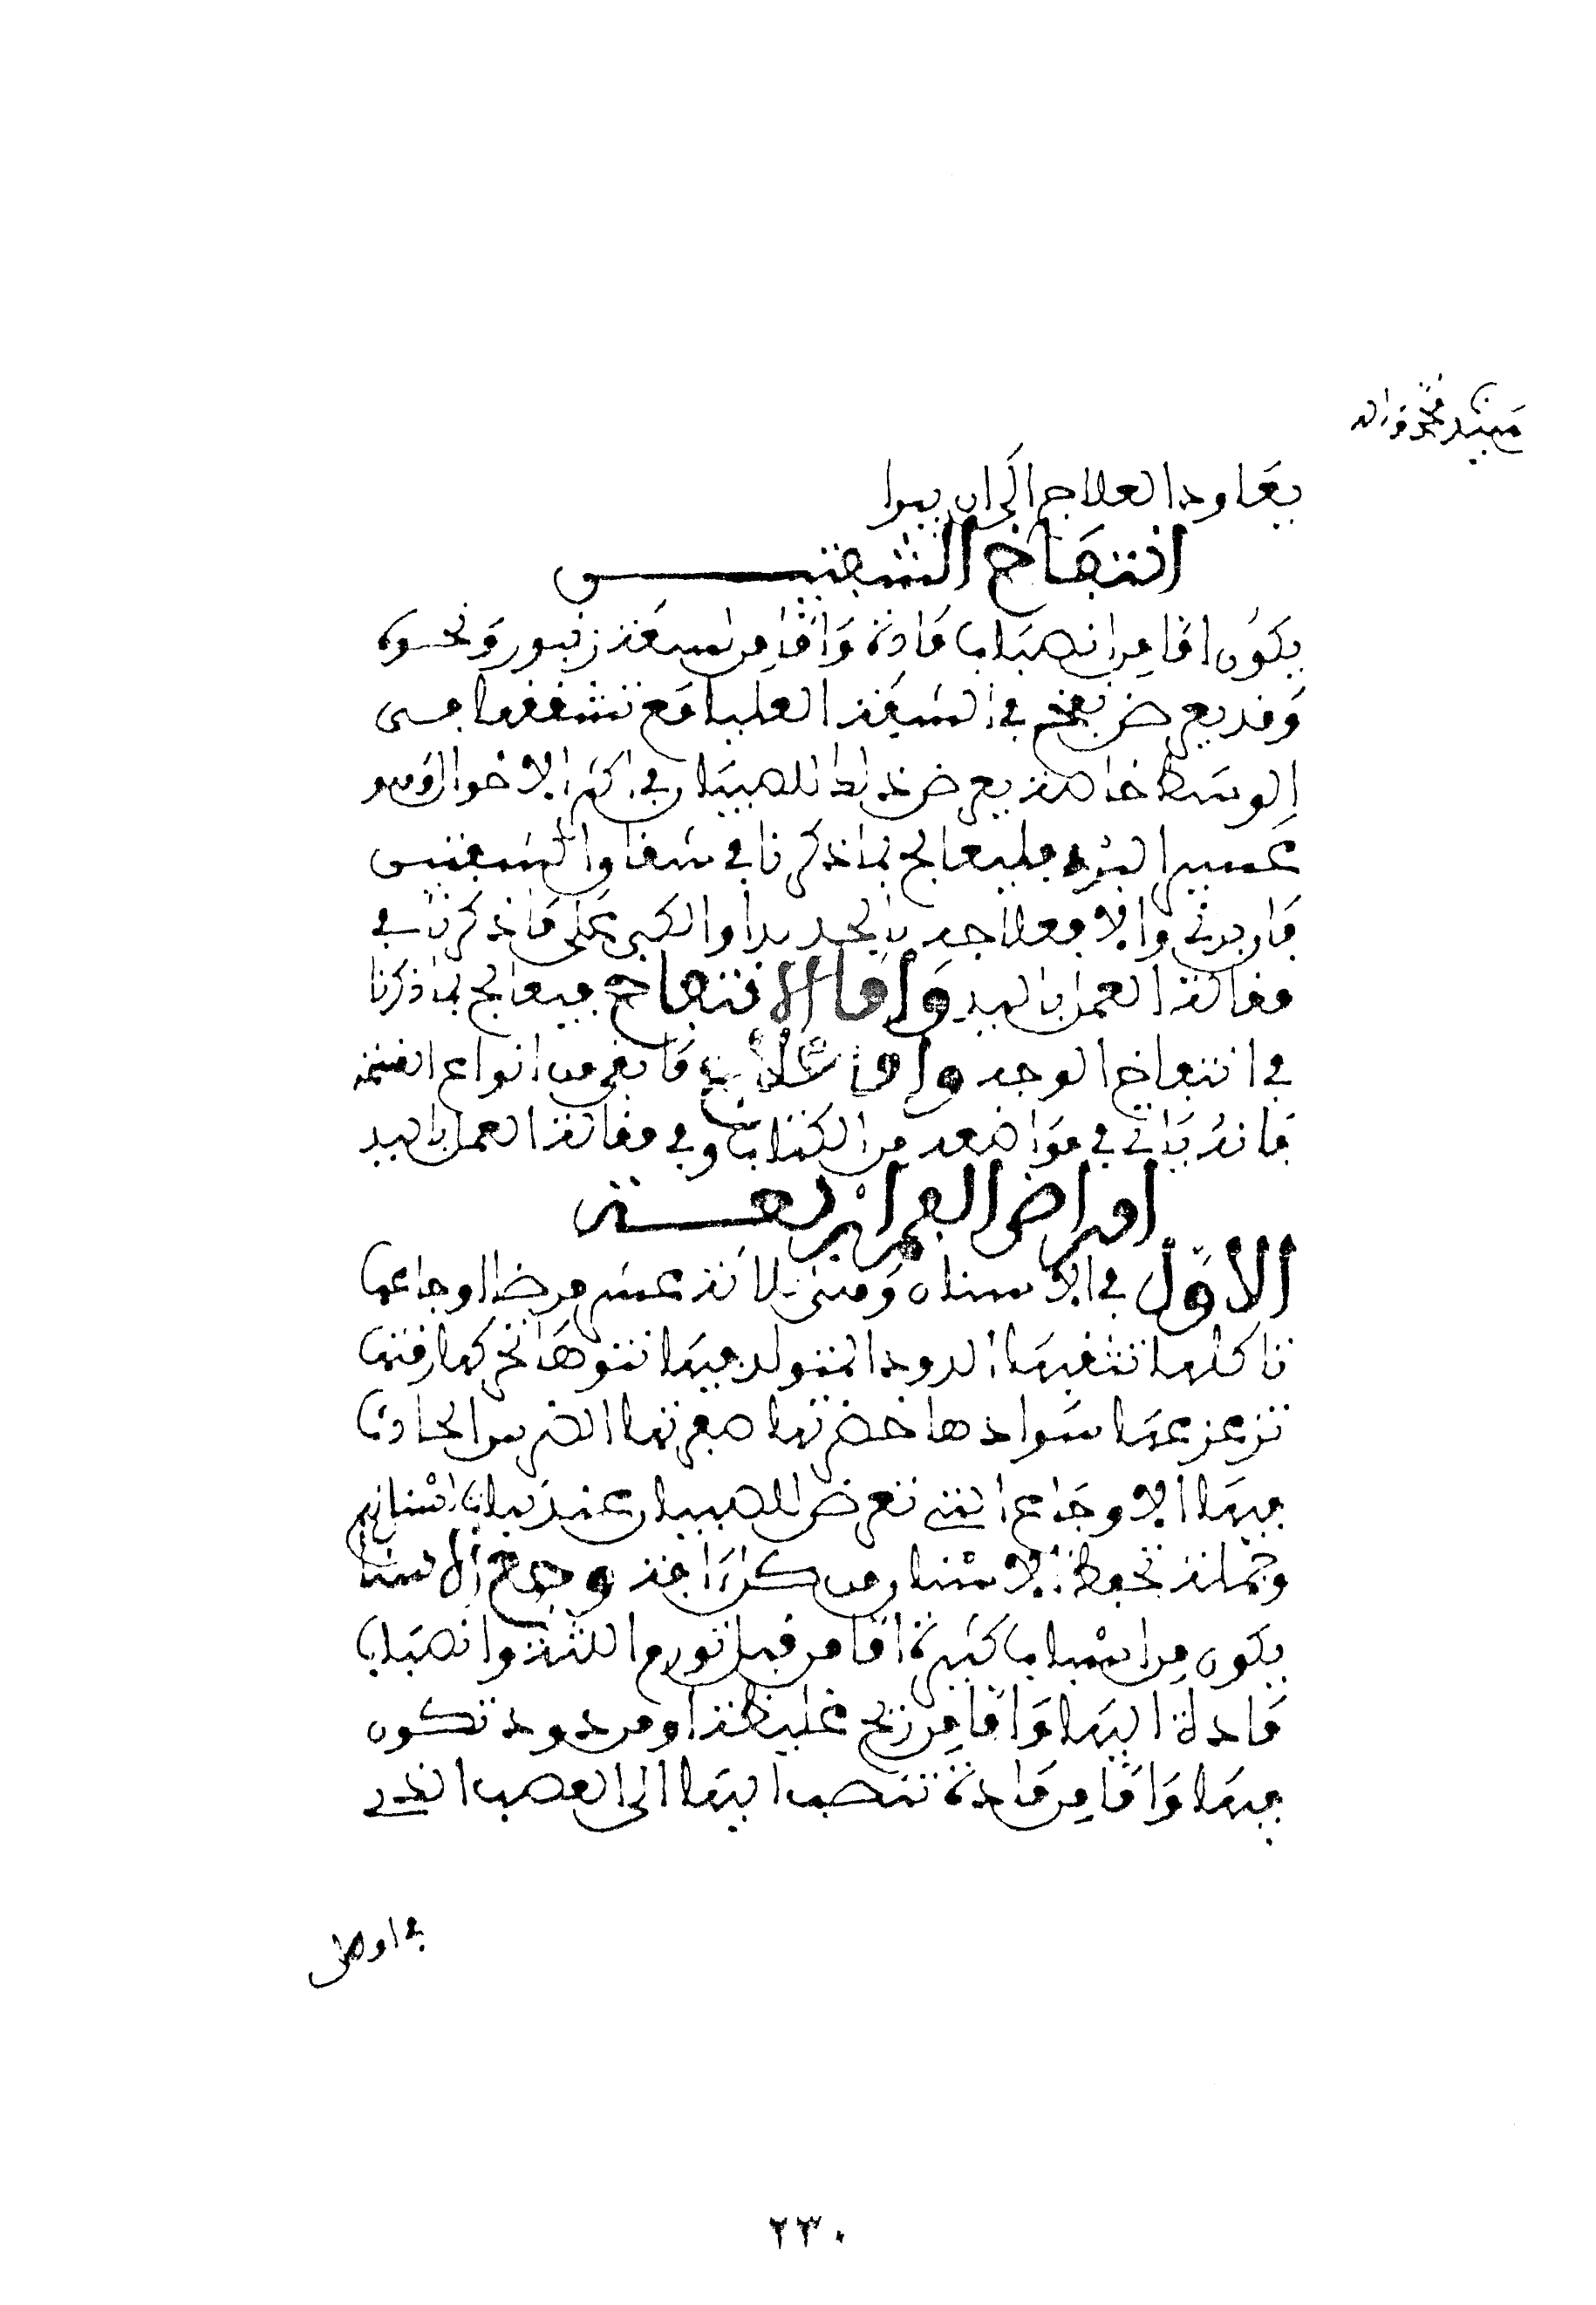 يعاود العلاج الى ان يبرا
انتفاخ الشفتين
يكون اما من انصباب مادة واما من لسعة زنبور ونحوه
وقد يعرض نفخ في الشفة العليا مع تشققها من
الوسط خاصة يعرض ذلك للصبيان في اكثر الاحوال وهو
عسير البرء فليعالج بما ذكرنا في شقاق الشفتين
فان برئ والا فعلاجه بالحديد او الكي على ما ذكرنا في
مقالة العمل باليد واما الانتفاخ فيعالج بما ذكرنا
في انتفاخ الوجه واما علاج ما بقى من انواع القسمة
فانه ياتي في مواضعه من الكتاب وفي مقالة العمل باليد
امراض الفم اربعة
الاول في الاسنان وهي ثلاثة عشر مرضا اوجاعها
تاكلها تثقبها الدود المتولد فيها نتوها تحركها رقتها
تزعزعها سوادها خضرتها صفرتها الضرس الحادث
فيها الاوجاع التي تعرض للصبيان عند نبات اسنانهم
وجملة تحفظ الاسنان من كل افة وجع الاسنان
يكون من اسباب كثيرة اما من قبل تورم اللثة وانصباب
مادة اليها واما من ريح غليظة او من دود تكون
فيها واما من مادة تنصب اليها الى العصب الذي
في اوصل
٢٣٠